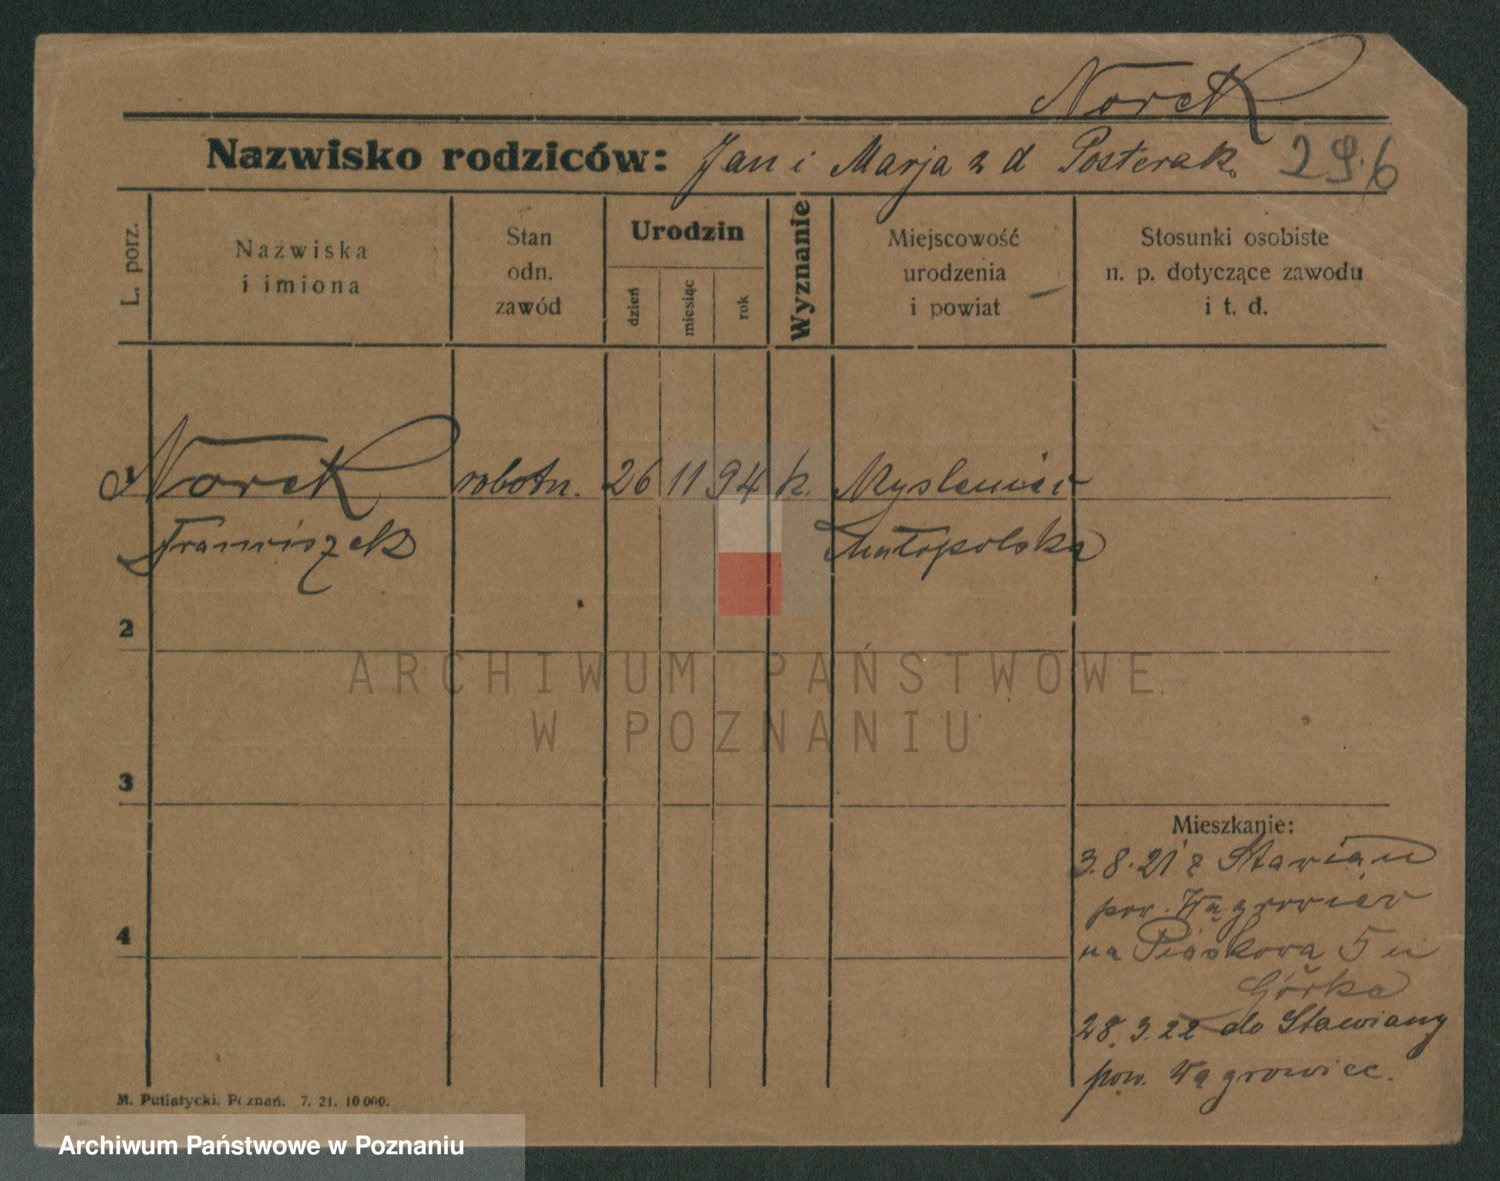 Norek
Nazwisko rodziców: Jan i Marja z d Posterak.
29.6
L. porz.
Nazwiska
i imiona
Stan
odn.
zawód
Urodzin
dzień
miesiąc
rok
Wyznanie
Miejscowość
urodzenia
i powiat
Stosunki osobiste
n. p. dotyczące zawodu
i t. d.
1 Norek robotn. 26 11 94 k. Myslenice
Franciszek Małopolska
2
3
4
Mieszkanie:
3.8.21 z Stawian
pow. Wągrowiec
na Piaskowa 5 u
Górka
28.3.22 do Stawiany
pow. Wągrowiec.
M. Putiatycki. Poznań. 7. 21. 10 000.
ARCHIWUM PAŃSTWOWE
W POZNANIU
Archiwum Państwowe w Poznaniu